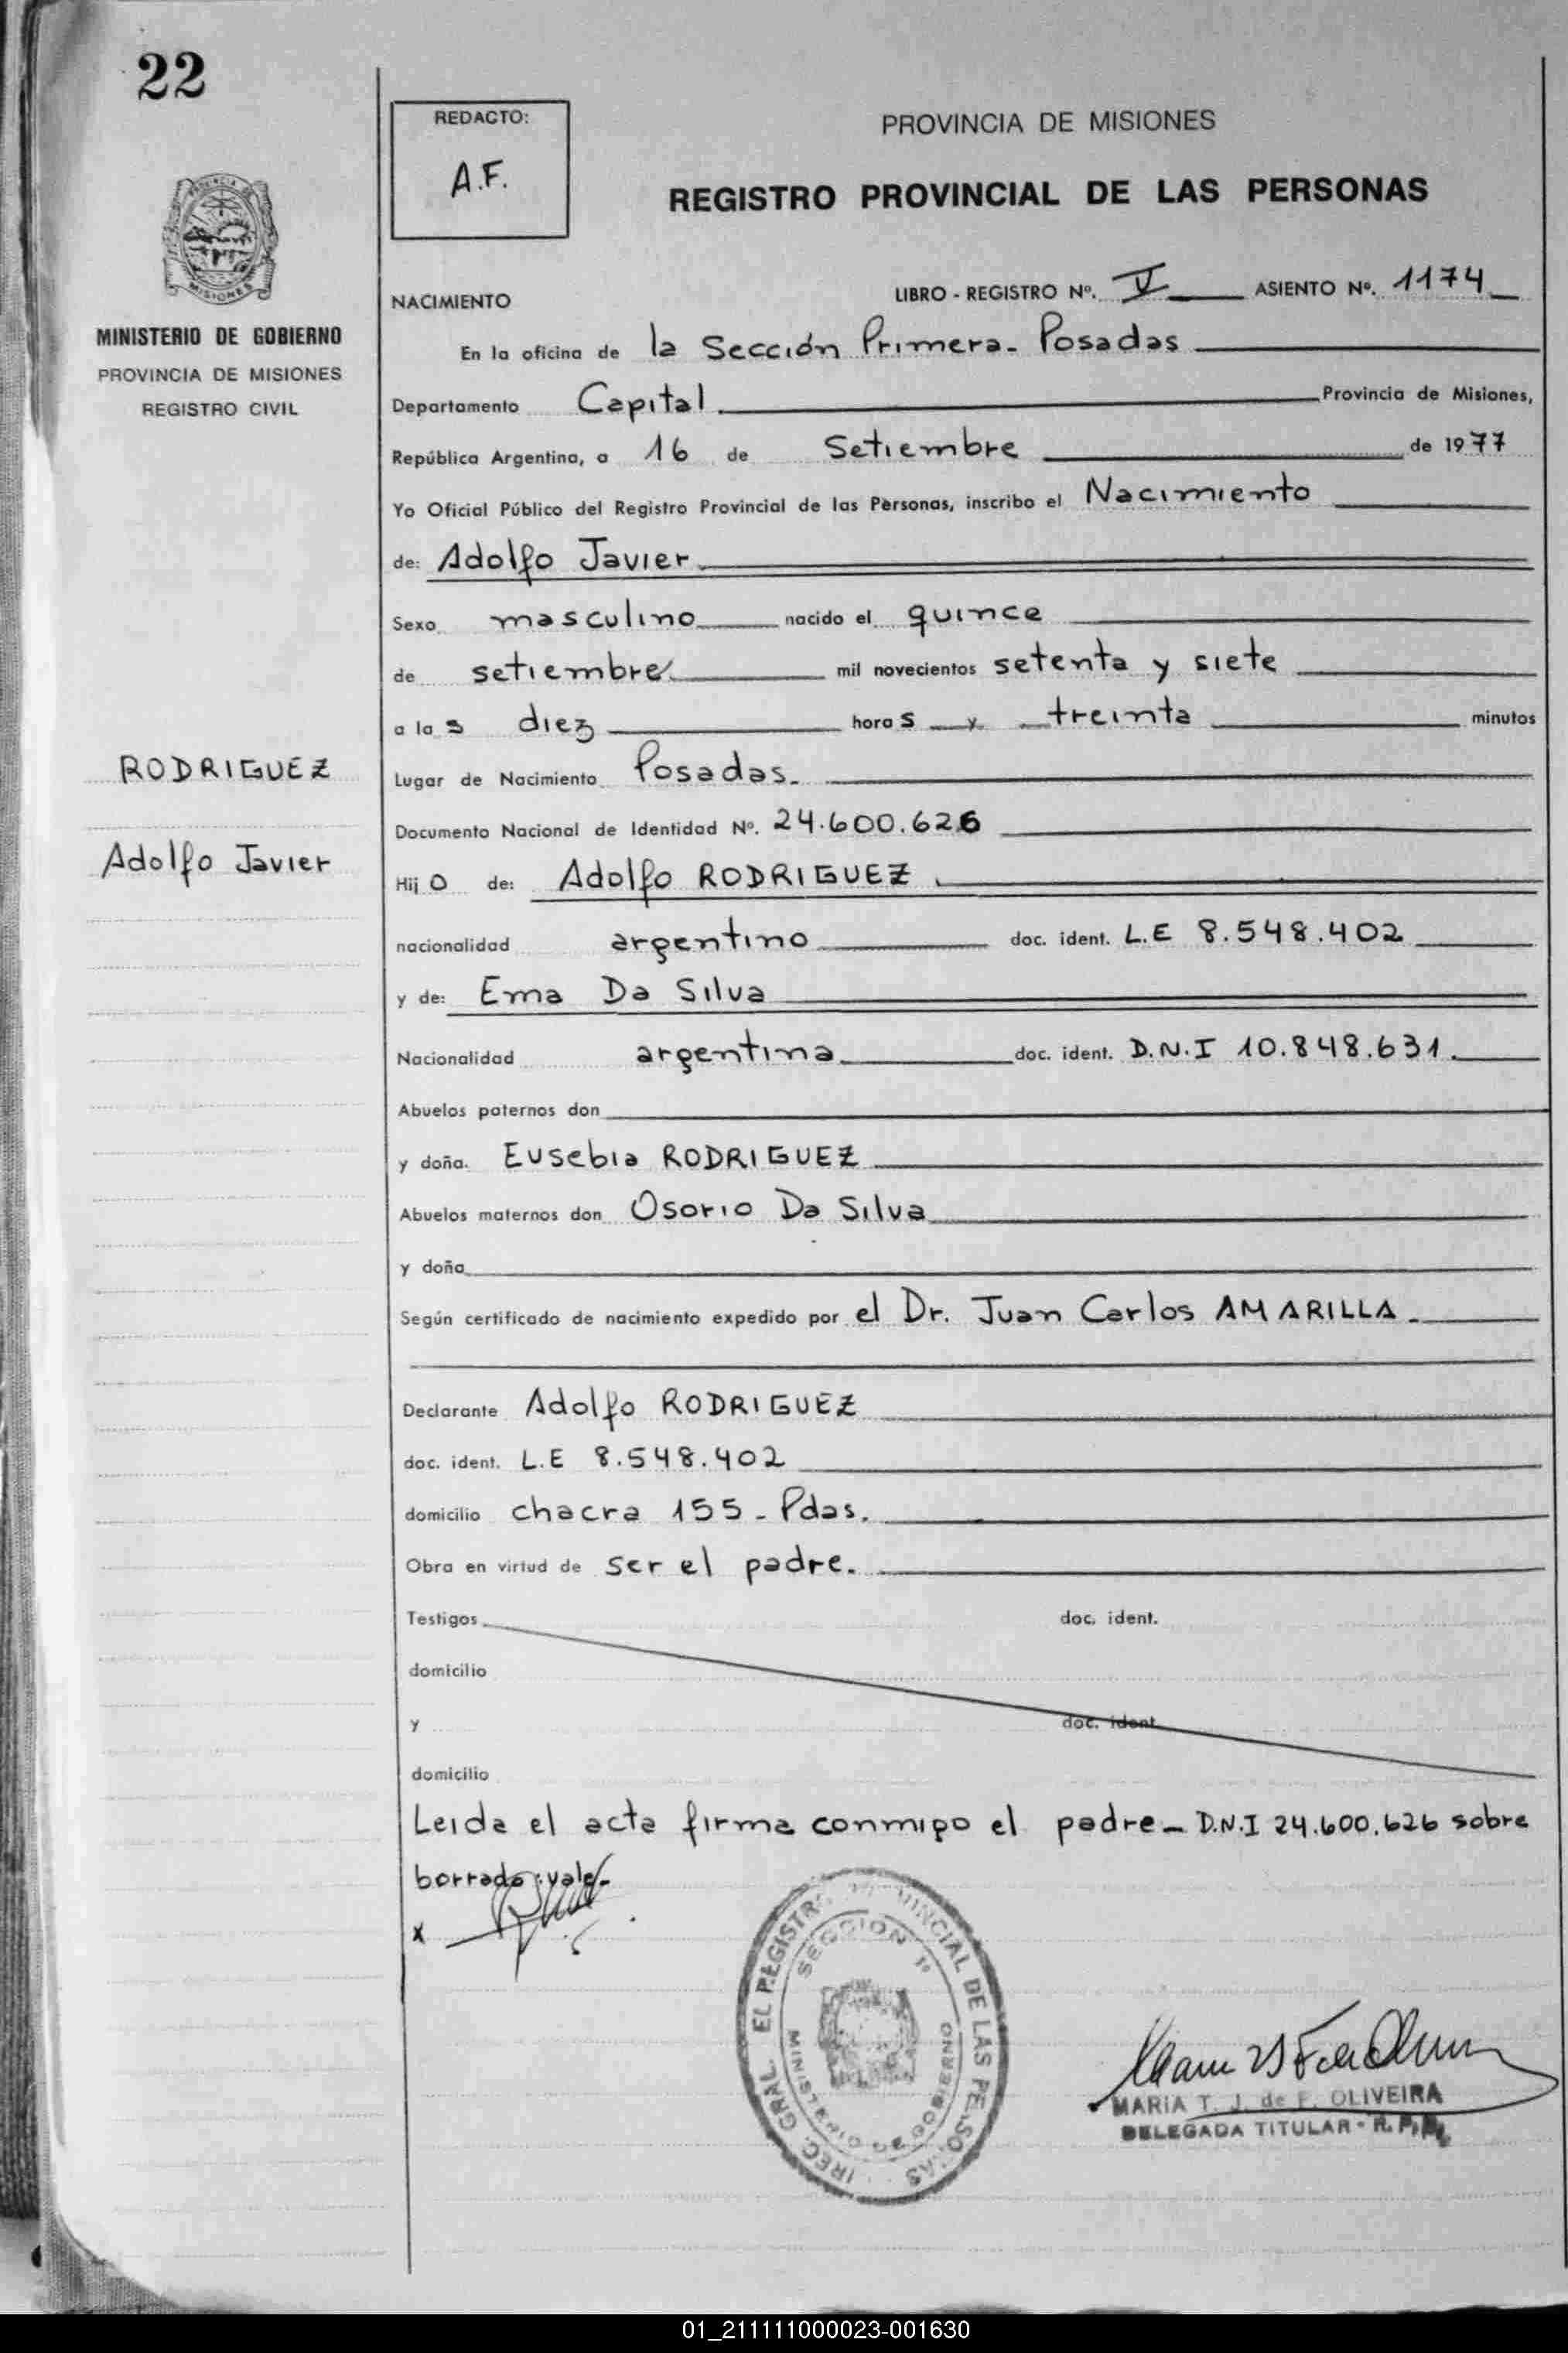 22
REDACTO:
A.F.
PROVINCIA DE MISIONES
REGISTRO PROVINCIAL DE LAS PERSONAS
MISIONES
MINISTERIO DE GOBIERNO
PROVINCIA DE MISIONES
REGISTRO CIVIL
NACIMIENTO LIBRO - REGISTRO Nº. V ASIENTO Nº. 1174
En la oficina de la Sección Primera - Posadas
Departamento Capital Provincia de Misiones,
República Argentina, a 16 de Setiembre de 1977
Yo Oficial Público del Registro Provincial de las Personas, inscribo el Nacimiento
de: Adolfo Javier
Sexo masculino nacido el quince
de setiembre mil novecientos setenta y siete
a las diez horas y treinta minutos
RODRIGUEZ
Adolfo Javier
Lugar de Nacimiento Posadas.
Documento Nacional de Identidad Nº. 24.600.626
Hijo de: Adolfo RODRIGUEZ
nacionalidad argentino doc. ident. L.E 8.548.402
y de: Ema Da Silva
Nacionalidad argentina doc. ident. D.N.I 10.848.631.
Abuelos paternos don
y doña. Eusebia RODRIGUEZ
Abuelos maternos don Osorio Da Silva
y doña
Según certificado de nacimiento expedido por el Dr. Juan Carlos AMARILLA.
Declarante Adolfo RODRIGUEZ
doc. ident. L.E 8.548.402
domicilio chacra 155 - Pdas.
Obra en virtud de ser el padre.
Testigos doc. ident.
domicilio
y doc. ident.
domicilio
Leida el acta firma conmigo el padre - D.N.I 24.600.626 sobre
borrado: vale-
x
SECCION 1º
DE LAS
MARIA T. J. de F. OLIVEIRA
DELEGADA TITULAR - R. P. P.
01_211111000023-001630